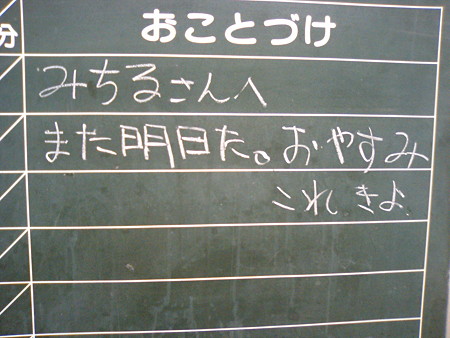 分 おことづけ
みちるさんへ
また明日た。おやすみ
これきよ